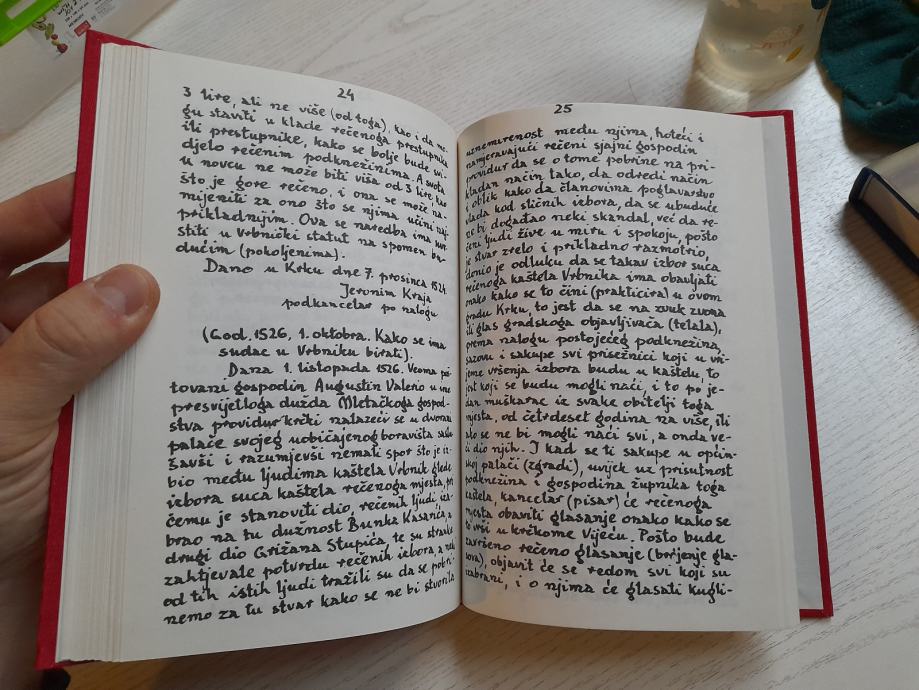 24
3 lire, ali ne više (od toga), kao i da mo-
gu staviti u klade rečenoga prestupnika
ili prestupnike, kako se bolje bude svi-
djelo rečenim podknežinima. A svota
u novcu ne može biti viša od 3 lire, kao
što je gore rečeno, i ona se može na-
mijeniti za ono što se njima učini naj-
prikladnijim. Ova se naredba ima uvr-
stiti u Vrbnički statut na spomen bu-
dućim (pokoljenima).
Dano u Krku dne 7. prosinca 1524.
Jeronim Kraja
podkancelar po nalogu
(God. 1526, 1. oktobra. Kako se ima
sudac u Vrbniku birati).
Dana 1. listopada 1526. Veoma poš-
tovani gospodin Augustin Valerio u ime
presvijetloga dužda Mletačkoga gospod-
stva providur krčki nalazeći se u dvorani
palače svojeg uobičajenog boravišta saslu-
šavši i razumjevši nemali spor što je iz-
bio među ljudima kaštela Vrbnik glede
izbora suca kaštela rečenoga mjesta, pri
čemu je stanoviti dio, rečenih ljudi iza-
brao na tu dužnost Bunka Kasarića, a
drugi dio Grižana Stupića, te su stranke
zahtjevale potvrdu rečenih izbora, a neki
od tih istih ljudi tražili su da se pobri-
nemo za tu stvar kako se ne bi stvorila
25
uznemirenost među njima, hoteći i
namjeravajući rečeni sjajni gospodin
providur da se o tome pobrine na pri-
kladan način tako, da odredi način
i oblik kako da članovima poglavarstvo
vlada kod sličnih izbora, da se ubuduće
ne bi događao neki skandal, već da re-
čeni ljudi žive u miru i spokoju, pošto
je stvar zrelo i prikladno razmotrio,
donio je odluku da se takav izbor suca
rečenoga kaštela Vrbnika ima obavljati
onako kako se to čini (prakticira) u ovom
gradu Krku, to jest da se na zvuk zvona
ili glas gradskoga objavljivača (telala),
prema nalogu postojećeg podknežina,
sazovu i sakupe svi prisežnici koji u vri-
jeme vršenja izbora budu u kaštelu, to
jest koji se budu mogli naći, i to po je-
dan muškarac iz svake obitelji toga
mjesta, od četrdeset godina na više, ili
ako se ne bi mogli naći svi, a onda ve-
ći dio njih. I kad se ti sakupe u općin-
skoj palači (zgradi), uvijek uz prisutnost
podknežina i gospodina župnika toga
kaštela, kancelar (pisar) će rečenoga
mjesta obaviti glasanje onako kako se
to vrši u krčkome Vijeću. Pošto bude
završeno rečeno glasanje (brojenje gla-
sova), objavit će se redom svi koji su
izabrani, i o njima će glasati kugli-